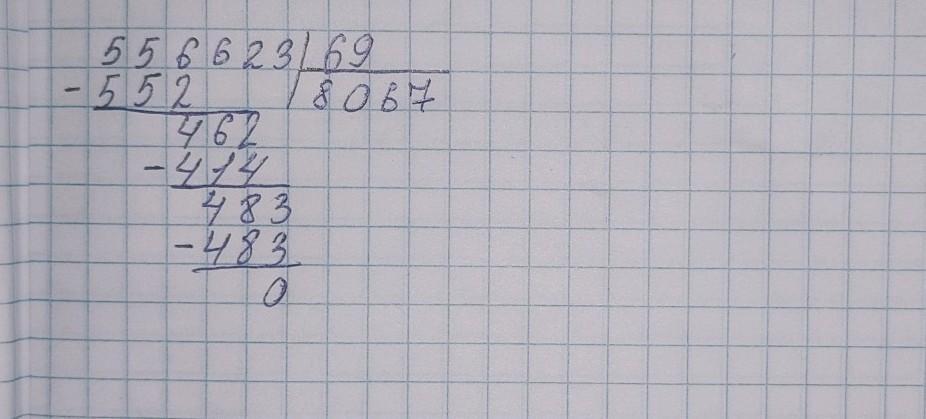 556623 69
- 552 8067
462
- 414
483
- 483
0